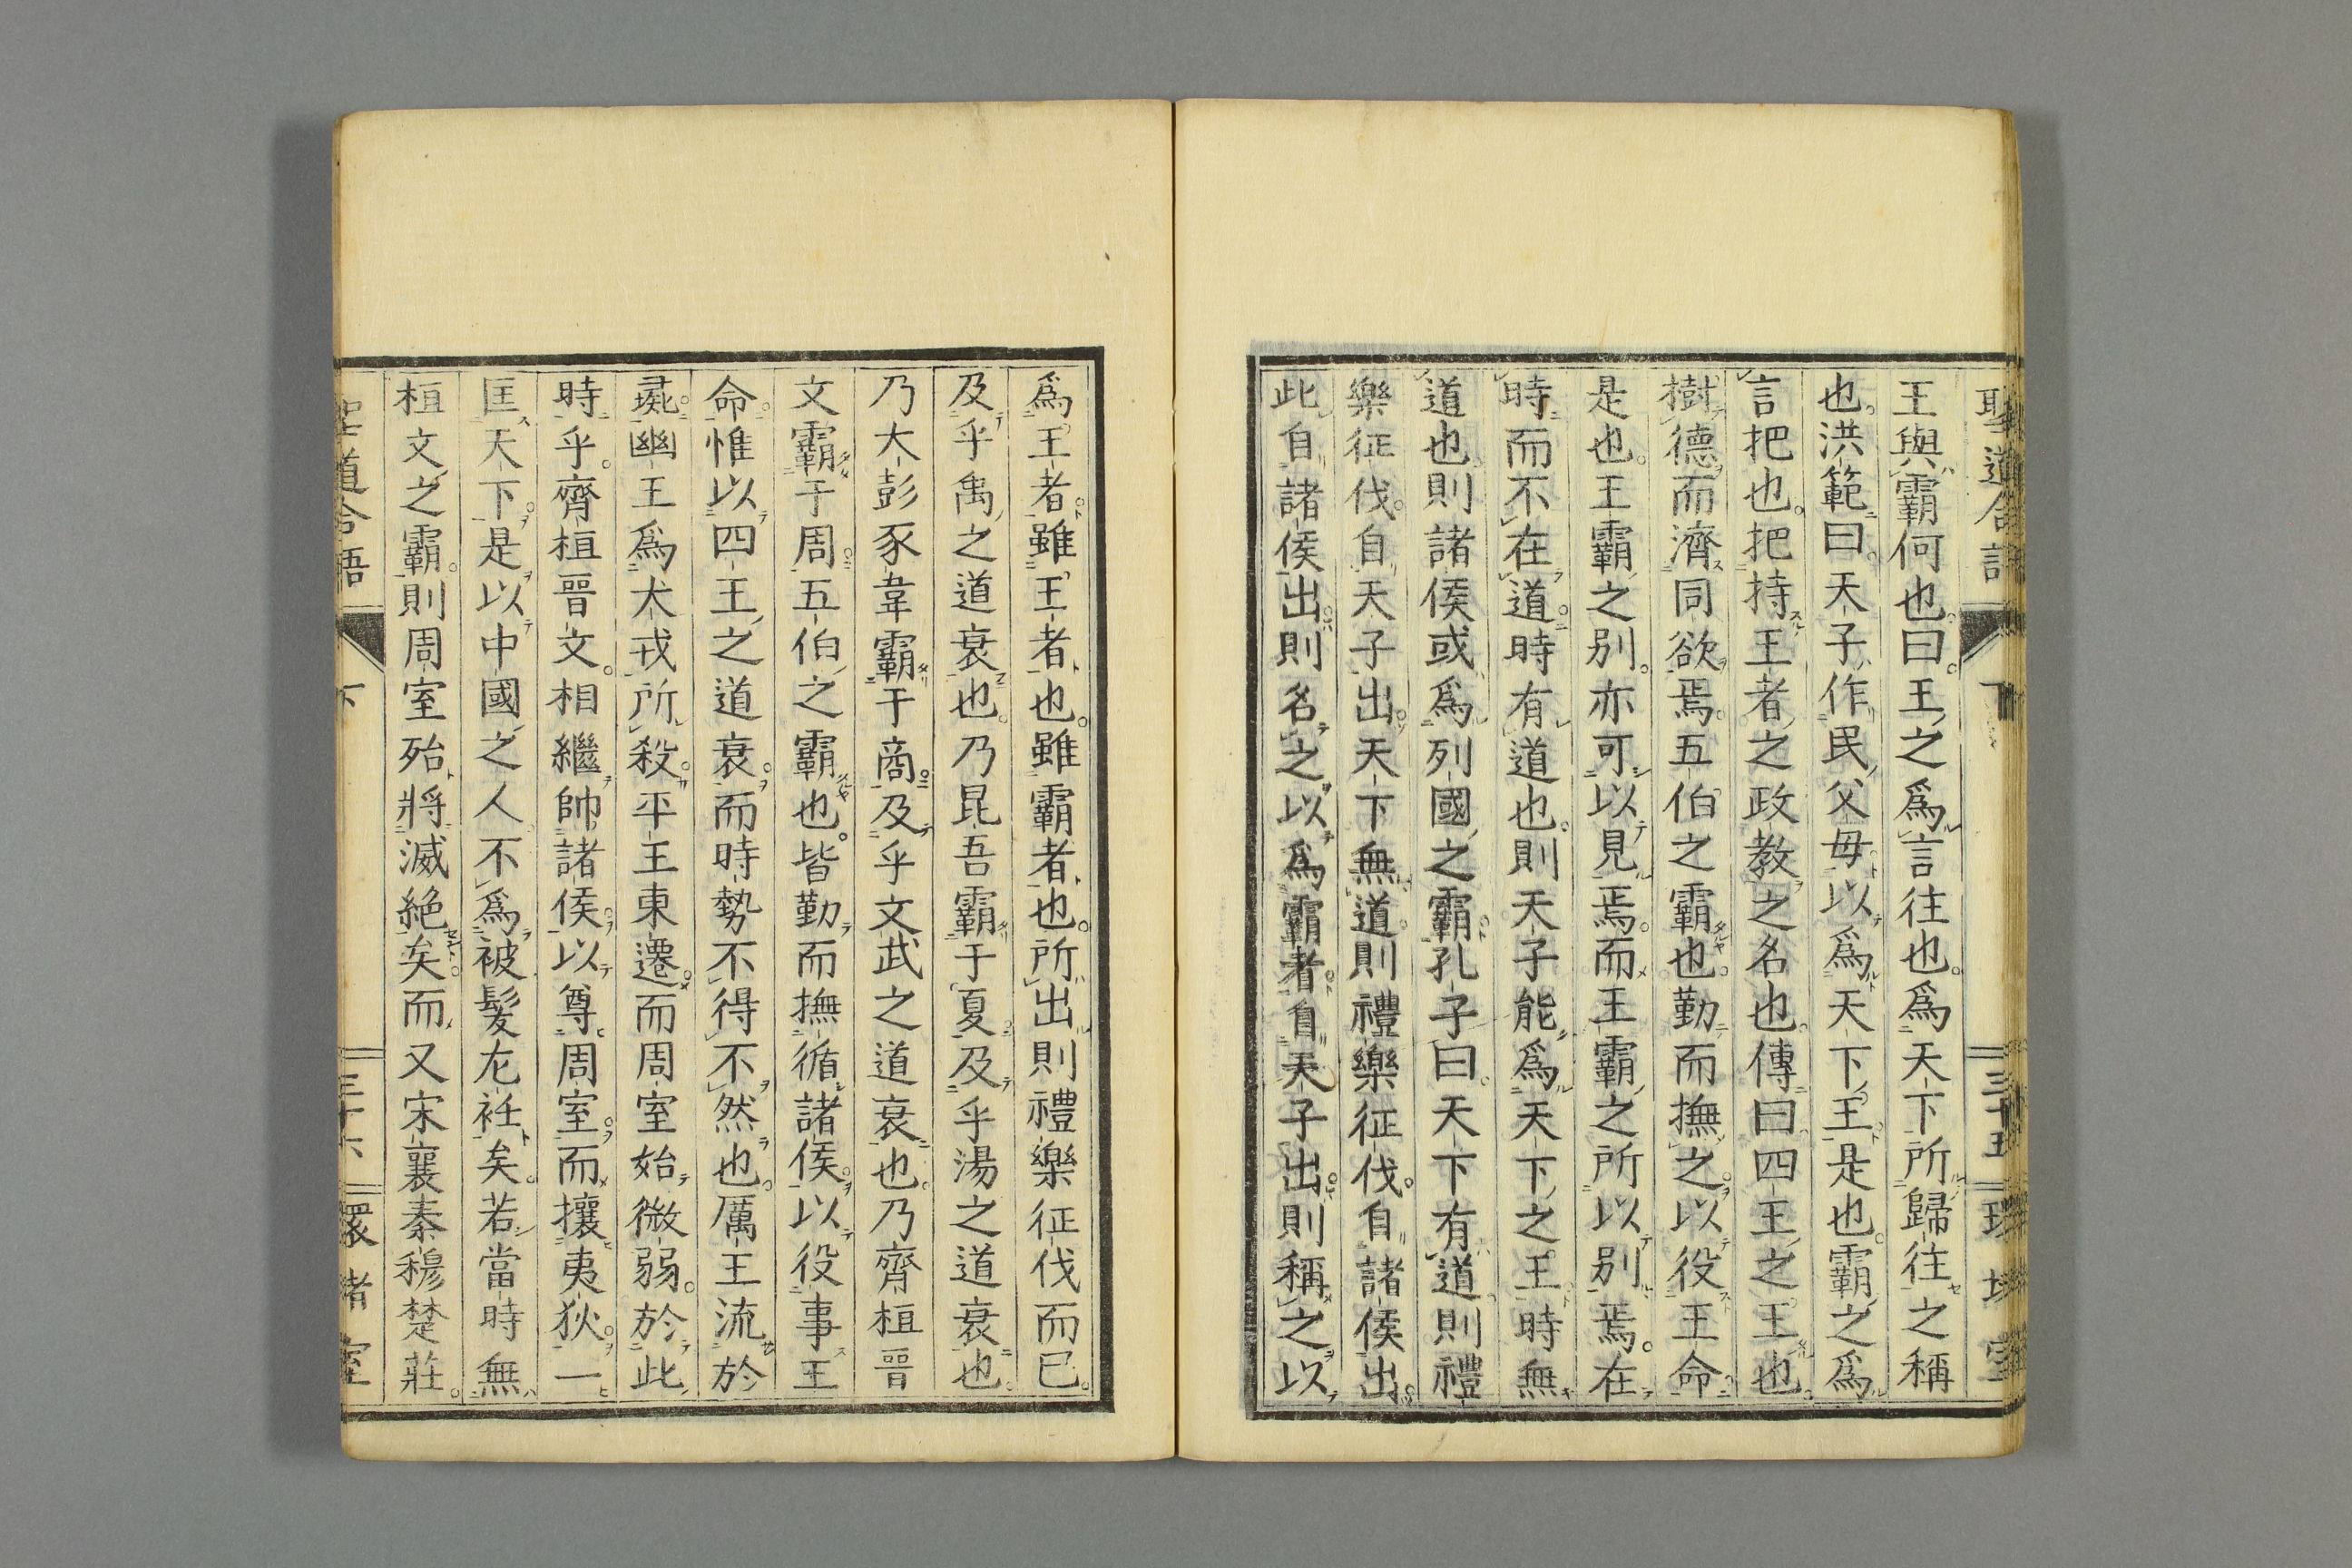 聖道合語 下 三十五 環堵室
王與霸何也。曰。王之爲言往也。爲天下所歸往之稱
也。洪範曰。天子作民父母以爲天下王是也。霸之爲
言把也。把持王者之政教之名也。傳曰。四王之王也。
樹德而濟同欲焉。五伯之霸也。勤而撫之。以役王命
是也。王霸之別。亦可以見焉。而王霸之所以別焉。在
時而不在道。時有道也。則天子能爲天下之王。時無
道也。則諸侯或爲列國之霸。孔子曰。天下有道。則禮
樂征伐。自天子出。天下無道。則禮樂征伐。自諸侯出。
此自諸侯出。則名之以爲霸者。自天子出。則稱之以
爲王者。雖王者也。雖霸者也。所出則禮樂征伐而已。
及乎禹之道衰也。乃昆吾霸于夏。及乎湯之道衰也。
乃大彭豕韋霸于商。及乎文武之道衰也。乃齊桓晉
文霸于周。五伯之霸也。皆勤而撫循諸侯。以役事王
命。惟以四王之道衰。而時勢不得不然也。厲王流於
彘。幽王爲犬戎所殺。平王東遷。而周室始微弱。於此
時乎。齊桓晉文。相繼帥諸侯。以尊周室。而攘夷狄。一
匡天下。是以中國之人不爲被髮左衽矣。若當時無
桓文之霸。則周室殆將滅絶矣。而又宋襄秦穆楚莊。
聖道合語 下 三十六 環堵室